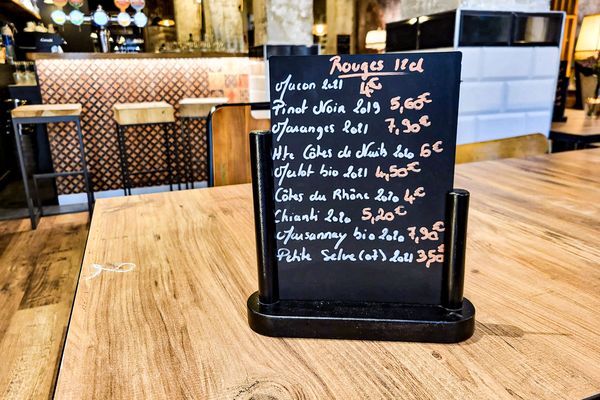 Rouges 12cl
Macon 2021 4€
Pinot Noir 2019 5,60€
Maranges 2021 7,90€
Hte Côtes de Nuits 2020 6€
Malbt bio 2021 4,50€
Côtes du Rhône 2020 4€
Chianti 2020 5,20€
Marsannay bio 2020 7,90€
Petite Selve (07) 2021 3,50€